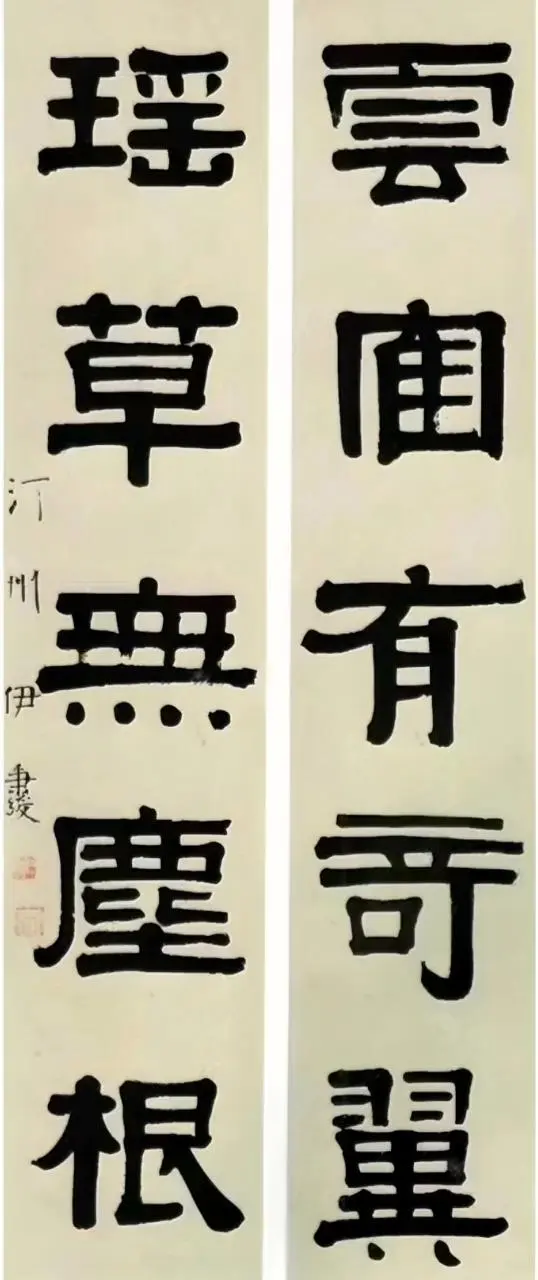 雲隺有奇翼
瑶草無塵根
汀州伊秉綬